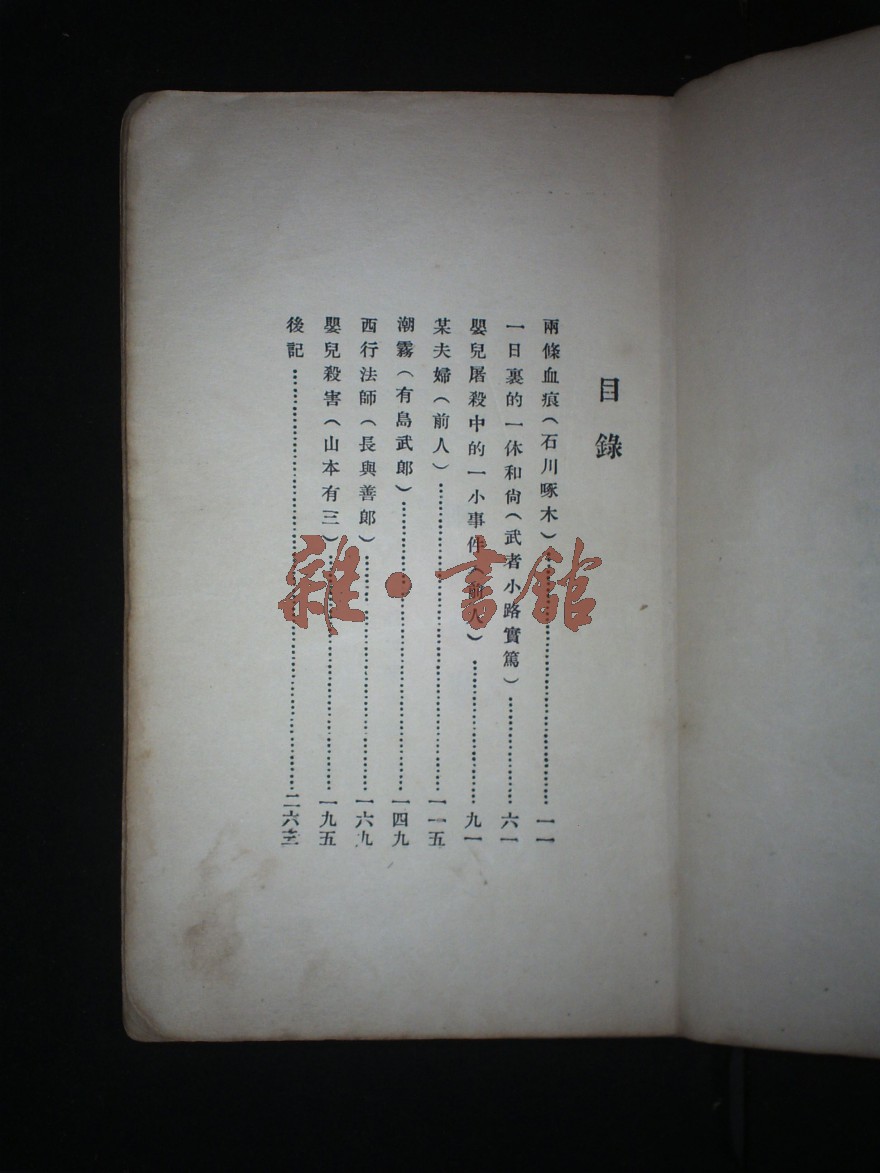 目錄
兩條血痕（石川啄木）……一一
一日裏的一休和尙（武者小路實篤）……六一
嬰兒屠殺中的一小事件（前人）……九一
某夫婦（前人）……一一五
潮霧（有島武郎）……一四九
西行法師（長與善郎）……一六九
嬰兒殺害（山本有三）……一九五
後記……二六三
雜·書館